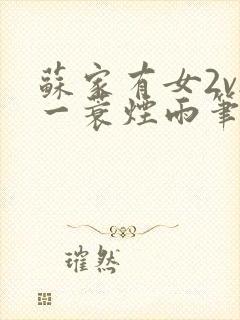 蘇家有女2v
一蓑煙雨筆
璀然